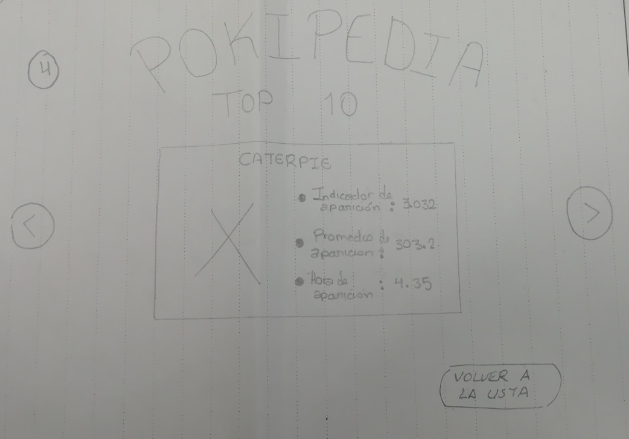 POKIPEDIA
4
TOP 10
CATERPIE
Indicador de
aparición : 3.032
<
>
Promedio de
aparición : 303.2
Hora de
aparición : 4.35
VOLVER A
LA LISTA